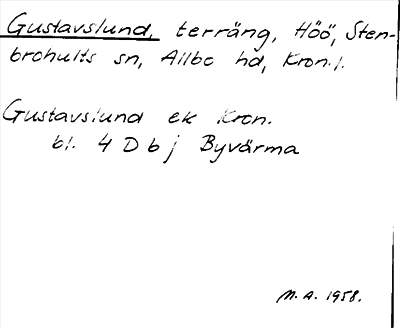 Gustavslund, terräng, Höö, Sten-
brohults sn, Allbo hd, Kron.l.
Gustavslund ek Kron.
bl. 4 D b j Byvärma
M.A. 1958.